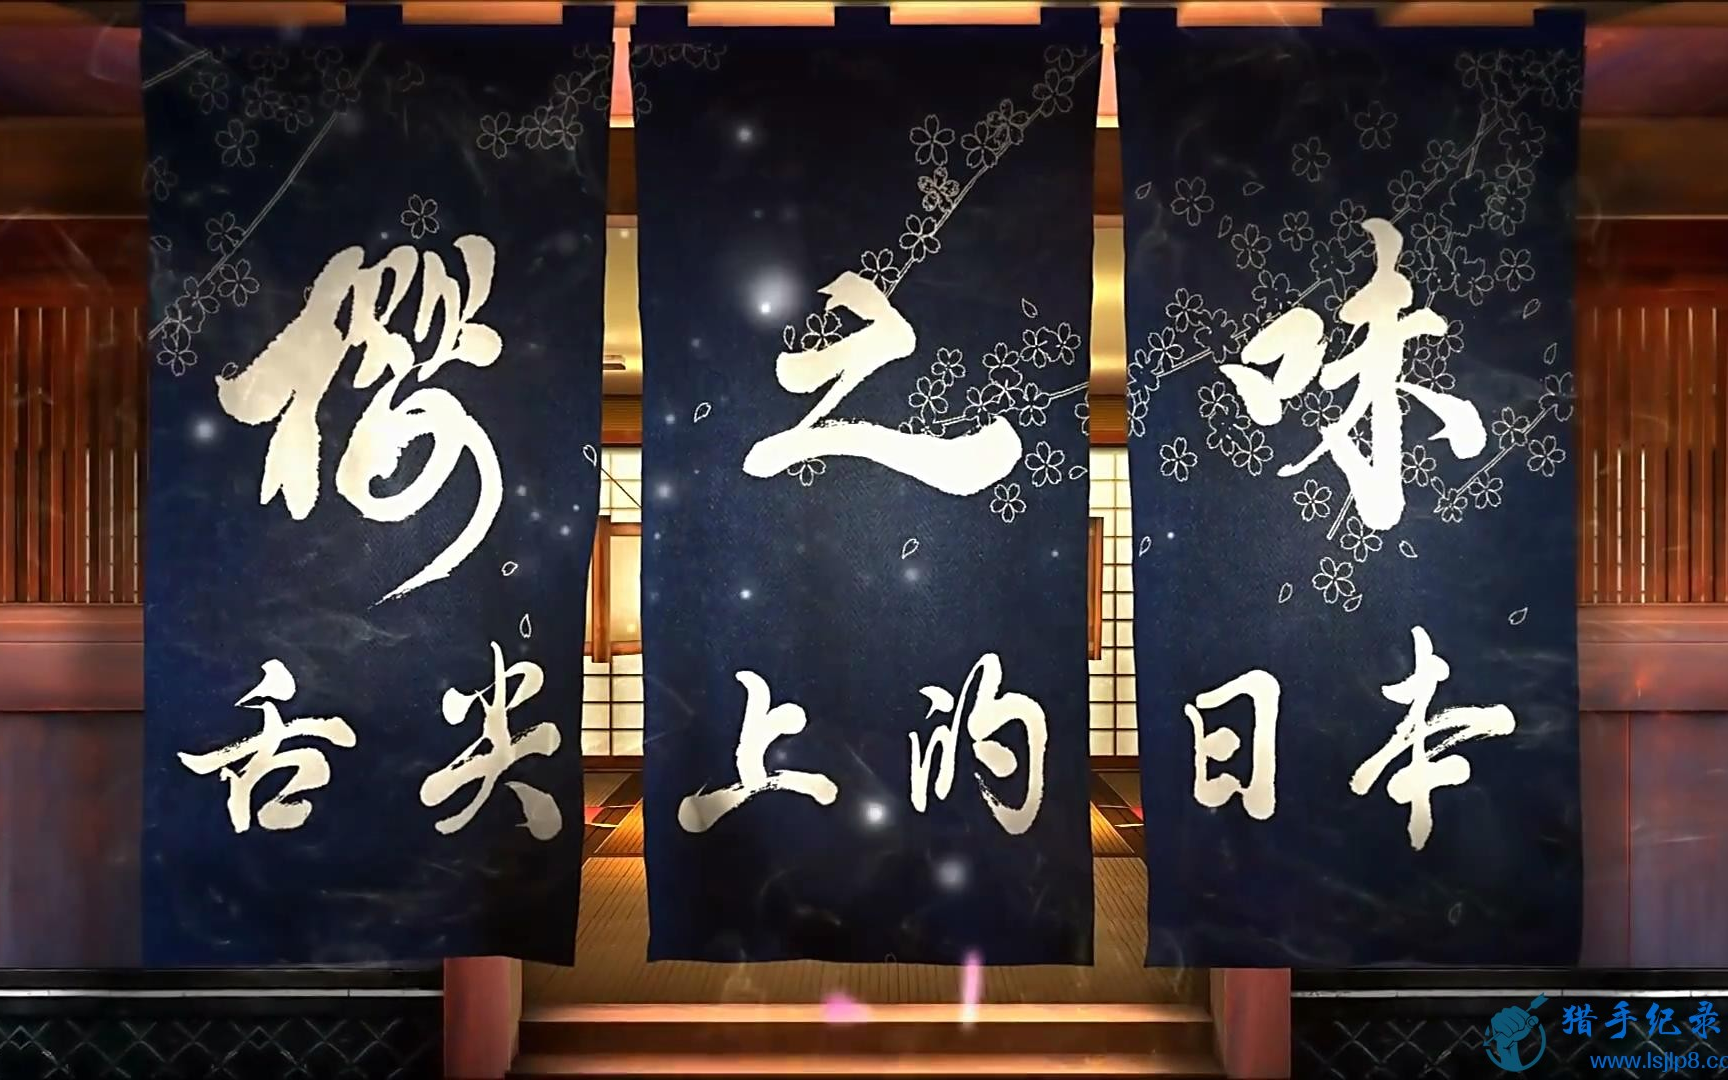 樱之味
舌尖上的日本
猎手纪录
www.lsjlp8.co